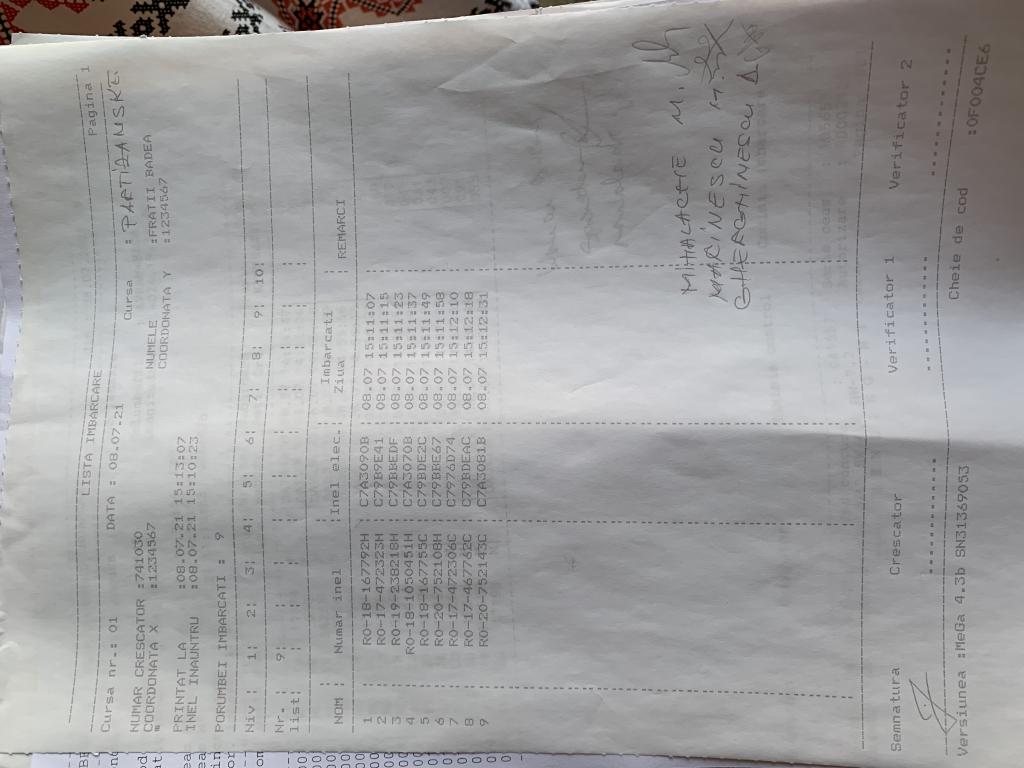 LISTA IMBARCARE Pagina 1
Cursa nr.: 01 DATA : 08.07.21 Cursa : PARTIAANSKE
NUMAR CRESCATOR :741030 NUMELE :FRATII BADEA
COORDONATA X :1234567 COORDONATA Y :1234567
PRINTAT LA :08.07.21 15:13:07
INEL INAUNTRU :08.07.21 15:10:23
PORUMBEI IMBARCATI : 9
Niv : 1: 2: 3: 4: 5: 6: 7: 8: 9: 10:
Nr. : 9: : : : : : : : : :
list: : : : : : : : : : :
NOM : Numar inel :Inel elec.: Imbarcati : REMARCI
Ziua
1 RO-18-167792H : C7A3090B : 08.07 15:11:07 :
2 RO-17-472323H : C79B9E41 : 08.07 15:11:15 :
3 RO-19-238218H : C79BBEDF : 08.07 15:11:23 :
4 RO-18-1050451H : C7A3070B : 08.07 15:11:37 :
5 RO-18-167755C : C79BDE2C : 08.07 15:11:49 :
6 RO-20-752108H : C79BBE67 : 08.07 15:11:58 :
7 RO-17-472306C : C7976D74 : 08.07 15:12:10 :
8 RO-17-467762C : C79BDEAC : 08.07 15:12:18 :
9 RO-20-752143C : C7A30B1B : 08.07 15:12:31 :
MIHALACHE M.
MARINESCU M.
GHEORGHINESCU A
Semnatura Crescator Verificator 1 Verificator 2
Versiunea :MeGa 4.3b SN31369053 Cheie de cod :0F004CE6